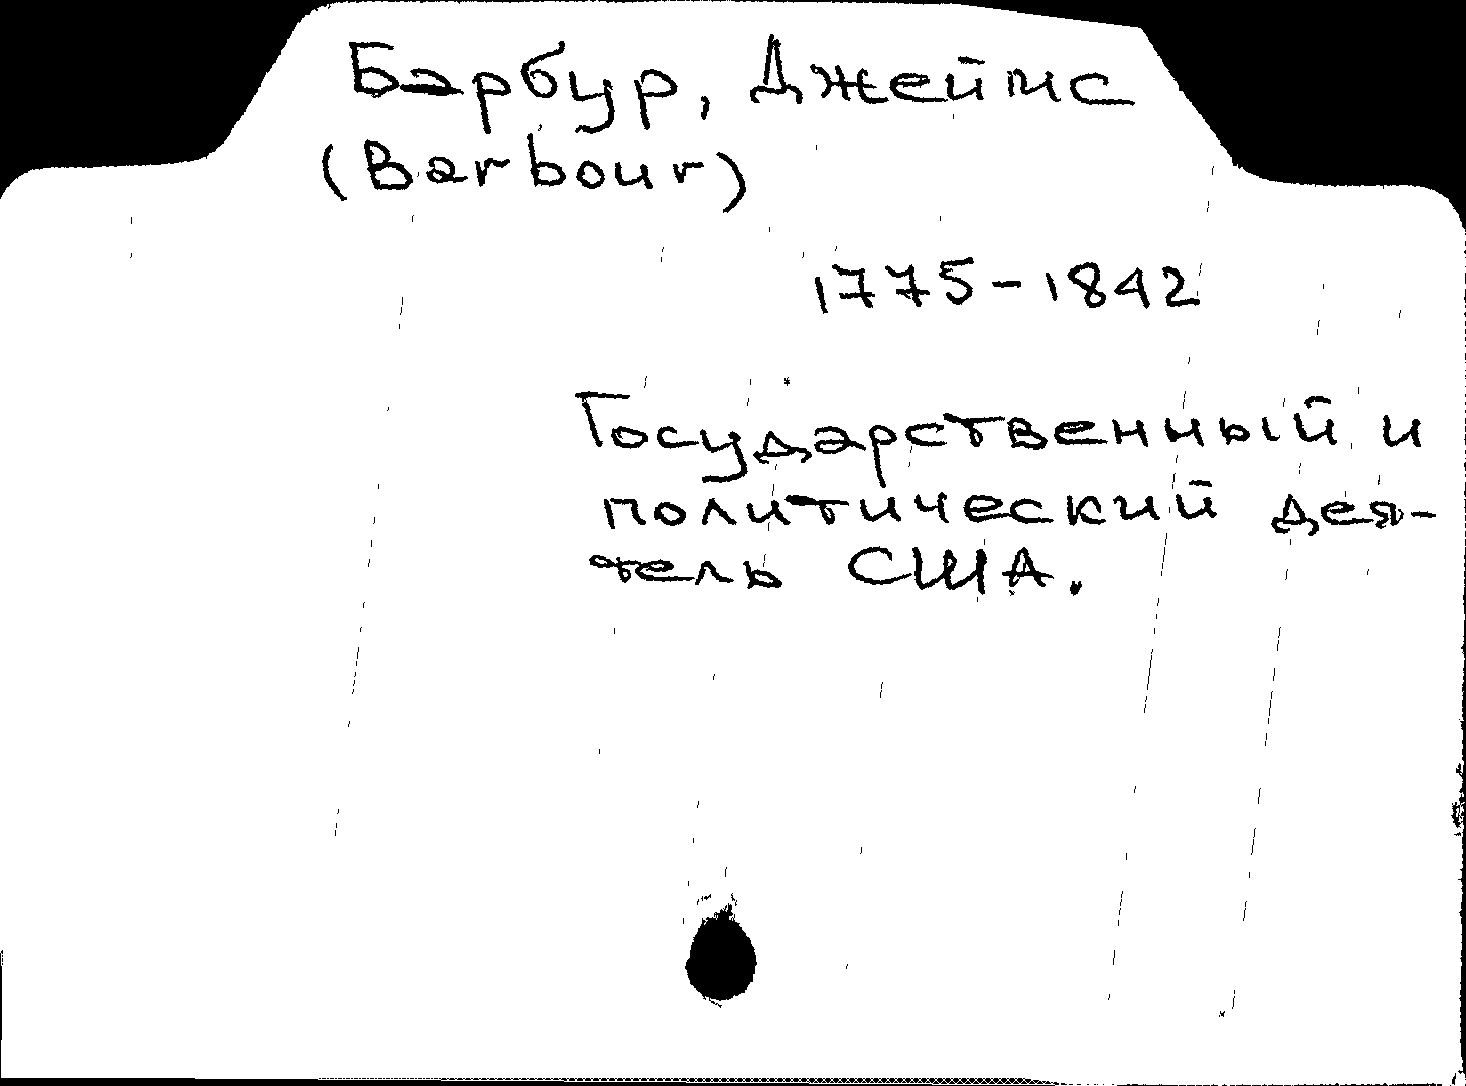 Барбур, Джеймс
(Barbour)
1775-1842
Государственный и
политический дея-
тель США.